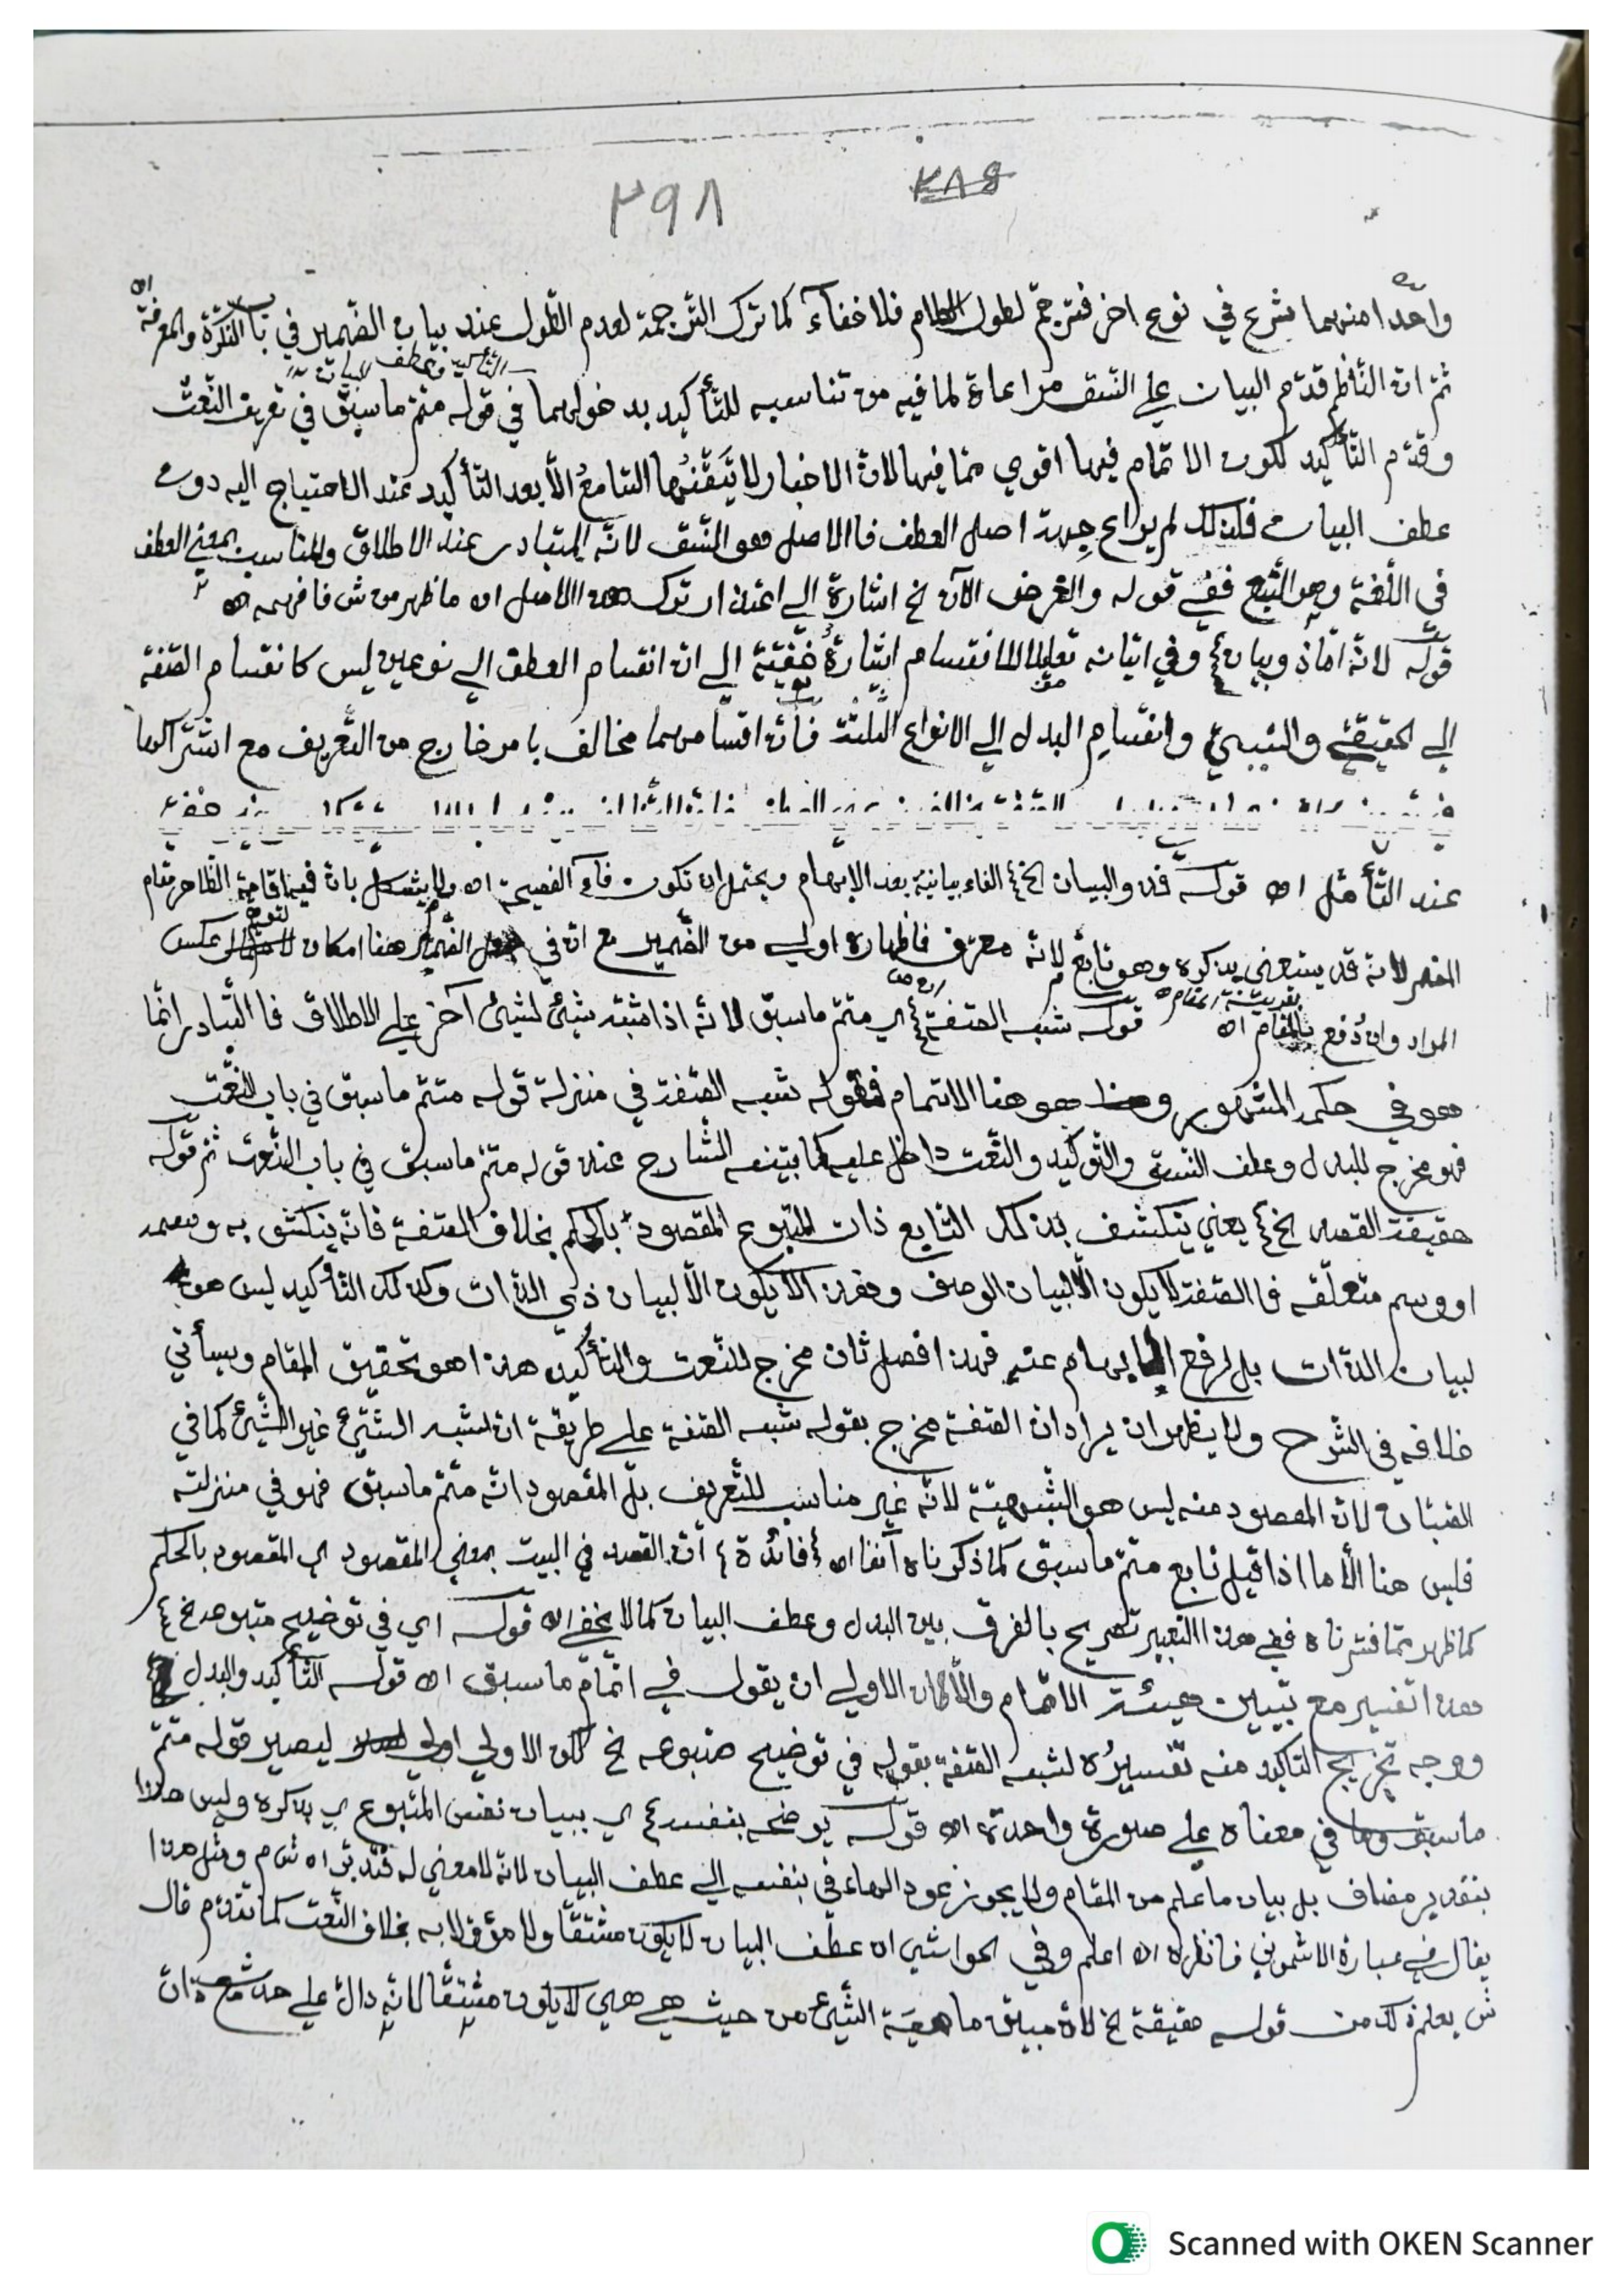 ٢٩٨
واحدا منهما يشرع في نوع اخر فترجم لطول الكلام فلا خفاء كما ترك الترجمة لعدم الطول عند بيان الضمير في باب النكرة والمعرفة اه
ثم ان الناظم قدم البيان علي النسق مراعاة لما فيه من تناسبه للتأكيد بدخولهما في قوله متم ما سبق في تعريف النعت
وقدم التأكيد لكون الاتمام فيها اقوي مما فيها لان الاخبار لا يتقنها السامع الا بعد التأكيد عند الاحتياج اليه دون
عطف البيان فلذلك لم يراع جهة اصل العطف فاالاصل هو النسق لانه المتبادر عند الاطلاق والمناسب بمعني العطف
في اللغة وهو التبع ففي قوله والغرض الآن الخ اشارة الي اعتذار ترك هذا الاصل اه ما ظهر من ش فافهمه اه
قوله لانه اماذ وبيان وفي اتيانه تعليلا للانقسام اشارة خفية الي ان انقسام العطف الي نوعين ليس كانقسام الصفة
الي الحقيقي والسببي وانقسام البدل الي الانواع الثلثة فان اقسامهما مخالف بامر خارج من التعريف مع اشتراكها
عند التأمل اه قوله فذو البيان الخ الفاء بيانية بعد الابهام ويحتمل ان تكون فاء الفصيحة اه ولا يشكل بان فيه اقامة الظاهر مقام
المضمر لانه قد يستغني بذكره وهو تابع لانه معرف فاظهاره اولي من الضمير مع ان في الضمير هنا امكان لتوهم عكس
المراد وان دفع بقرينة المقام اه قوله شبه الصفة اي متم ما سبق لانه اذا شبه شيئ لشيئ آخر علي الاطلاق فاالتبادر انما
هو في حكمه المشهور وهو هنا الاتمام فقوله شبه الصفة في منزلة قوله متم ما سبق في باب النعت
فهو مخرج للبدل وعطف النسق والتوكيد والنعت داخل عليه كما بينه الشارح عند قوله متم ما سبق في باب النعت ثم قوله
حقيقة القصد الخ يعني ينكشف بذلك التابع ذات المتبوع المقصود بالحكم بخلاف الصفة فانه ينكشف به وسمه
او وسم متعلقه فاالصفة لا يكون الا لبيان الوصف وهذا لا يكون الا لبيان ذي الذات وكذلك التأكيد ليس هو
لبيان الذات بل لرفع الابهام عنه فهذا فصل ثان مخرج للنعت والتأكيد هذا هو تحقيق المقام وسيأتي
خلافه في الشرح ولا يظهر ان يراد ان الصفة مخرج بقوله شبه الصفة علي طريقة ان شبه الشيئ غير الشيئ كما في
الصبان لان المقصود منه ليس هو الشبهية لانه غير مناسب للتعريف بل المقصود انه متم ما سبق فهو في منزلته
فليس هنا الا ما اذا قيل تابع متم ما سبق كما ذكرناه آنفا اه فائدة ان القصد في البيت بمعني المقصود اي المقصود بالحكم
كما ظهر مما فسرناه ففي هذا التعبير تصريح بالفرق بين البدل وعطف البيان كما لا يخفي اه قوله اي في توضيح متبوعه الخ
هذا تفسير مع تبيين هيئة الاتمام والا كان الاولي ان يقول في اتمام ما سبق اه قوله التأكيد والبدل
ووجه تخريج التأكيد منه تفسيره لشبه الصفة بقوله في توضيح متبوعه الخ كان الاولي ليصير قوله متم
ما سبق وما في معناه علي صورة واحدة اه قوله يوضحه بنفسه اي ببيان نفس المتبوع اي بذكره وليس هذا
بتقدير مضاف بل بيان ما علم من المقام ولا يجوز عود الهاء في بنفسه الي عطف البيان لانه لا معني له فتدبر اه ومثل هذا
يقال في عبارة الاشموني فانظره اه اعلم وفي الحواشي ان عطف البيان لا يكون مشتقا ولا مؤولا به بخلاف النعت كما تقدم قال
ش يعلم ذلك من قوله حقيقة الخ لان مبين ماهية الشيئ من حيث هي هي لا يكون مشتقا لانه دال علي حدث مع ذات
Scanned with OKEN Scanner